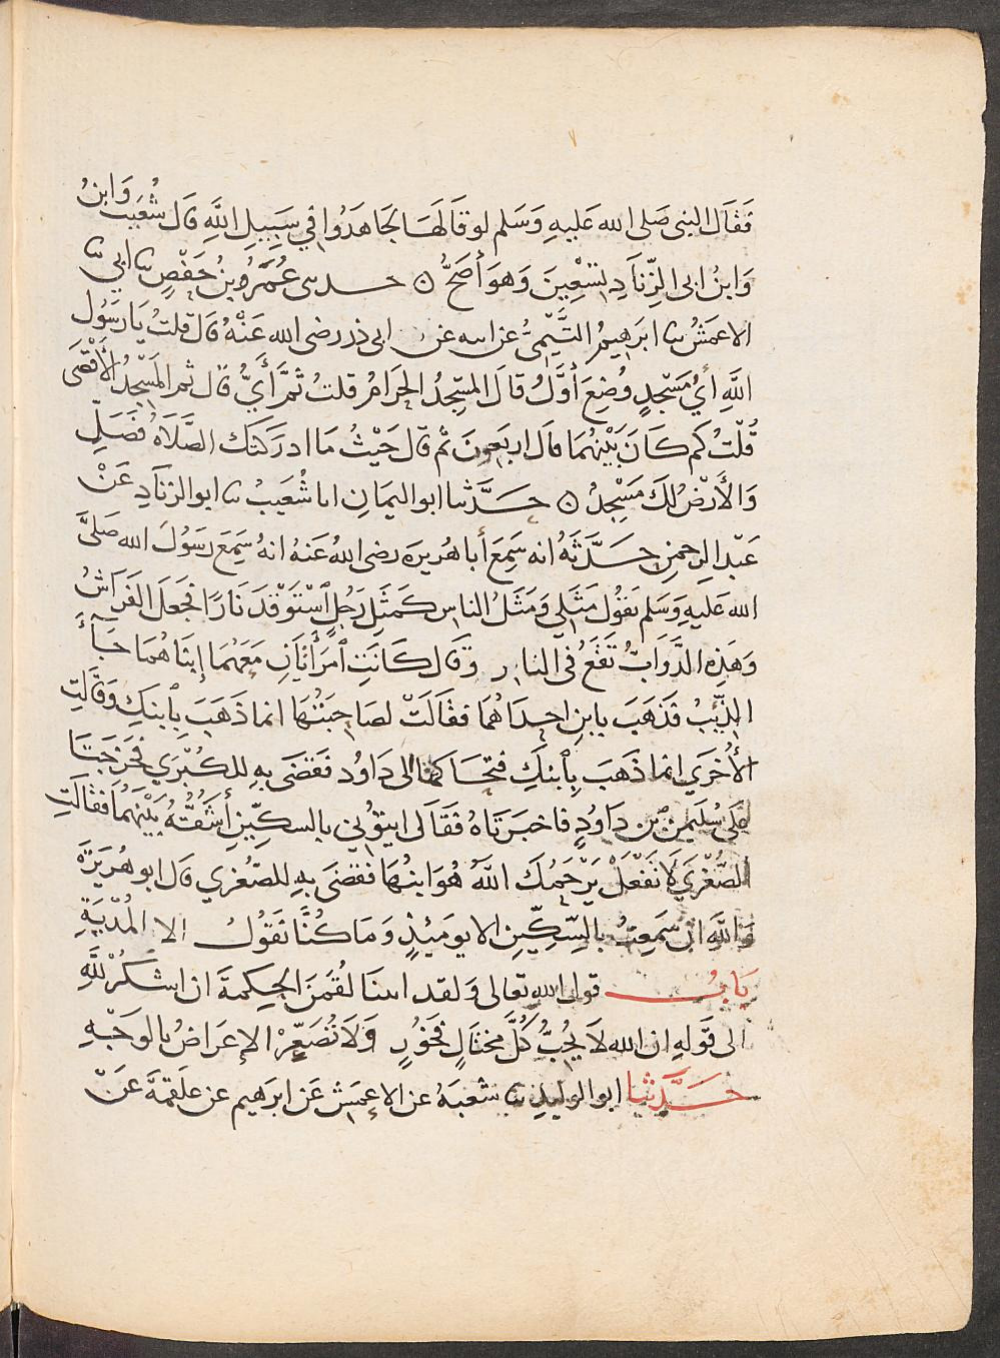 فَقَالَ النبى صَلى الله عَليهِ وَسَلم لو قَالَهَا لجَاهَدُوا في سَبِيلِ اللَّهِ قَال شُعَيب وَابنُ
وَابنُ ابى الزِّنَادِ تِسْعِينَ وَهوَ أَصَحُّ ۞ حدثنى عُمَرُ وبنُ حَفْصٍ ثنا ابي ثنا
الاعمَشُ ثنا ابرَهِيمُ التَّيْمِىُّ عن ابيه عن ابى ذر رضى الله عَنْهُ قَال قلتُ يَا رَسُول
اللَّهِ أيُّ مَسْجدٍ وُضِعَ أَوَّلُ قالَ المسْجِدُ الحَرَامُ قلتُ ثمَّ أَيُّ قَال ثم المَسْجِدُ الأَقْصَى
قُلْتُ كَم كَانَ بَيْنَهُمَا قال اربَعونَ ثم قال حَيْثُ مَا ادرَكَتكَ الصَّلَاةُ فَصَلِّ
وَالأَرْضُ لكَ مَسْجِدُ ۞ حَدَّثنا ابو اليَمَانِ انا شُعَيبُ ثنا ابو الزنَادِ عَنْ
عَبْدِ الرحمنِ حَدَّثهُ انه سَمِعَ أبا هُريرَه رضى اللهُ عَنهُ انهُ سَمِعَ رَسُولَ الله صَلىَّ
الله عَليهِ وَسَلم يَقوُل مَثَلي وَمَثَلُ الناس كَمثَلِ رَجُلٍ ٱسْتَوقَدَ نَارًا فجَعلَ الفَرَاشُ
وَهَذِه الدَّوَابُّ تَقَعُ فى النار وَقَال كَانَتِ ٱمرَأتَانِ مَعَهُمَا إبنَاهُمَا جَآءَ
الذِّيْبُ فَذَهَبَ بابنِ احِدَاهُمَا فقَالَتْ لصَاحِبَتُهَا انما ذَهَبَ بِٱبنكِ وَقالتِ
الأُخْرَي انما ذَهَبَ بِٱبنكِ فتحَاكمَا الى دَاوُد فَقضَى بهِ للكُبْرَي فخَرَجَتَا
عَلَى سُلَيْمن بن دَاودٍ فاخبرَتاهُ فقَالَ ايتوُني بالسكِّينِ أشُقُّهُ بَيْنهُمَا فقالَتِ
الصُّغْرَي لا تَفْعَلْ يَرْحَمُكَ اللَّهُ هُوَ ابنُهَا فقَضَى بهِ للصّغري قَال ابو هُرَيرَةَ
وَاللَّهِ ان سَمِعتُ بالسِّكِّينِ الا يومَئِذٍ وَمَا كُنَّا نَقوُلُ الا المُدْيَةِ
بَابُ قول اللهِ تعالى وَلقد اتينَا لقُمَنَ الحِكمةَ ان اشكُرْ للَّهِ
الى قَولهِ ان الله لَا يُحِبُّ كُلَّ مختَالٍ فخُورٍ وَلَا تُصَعِّرْ الإعرَاضُ بالوَجْهِ
حَدَّثنا ابو الوليدِ ثنا شعبَهُ عن الاعمَشِ عَن ابرَهيم عن علقمَةَ عَنْ